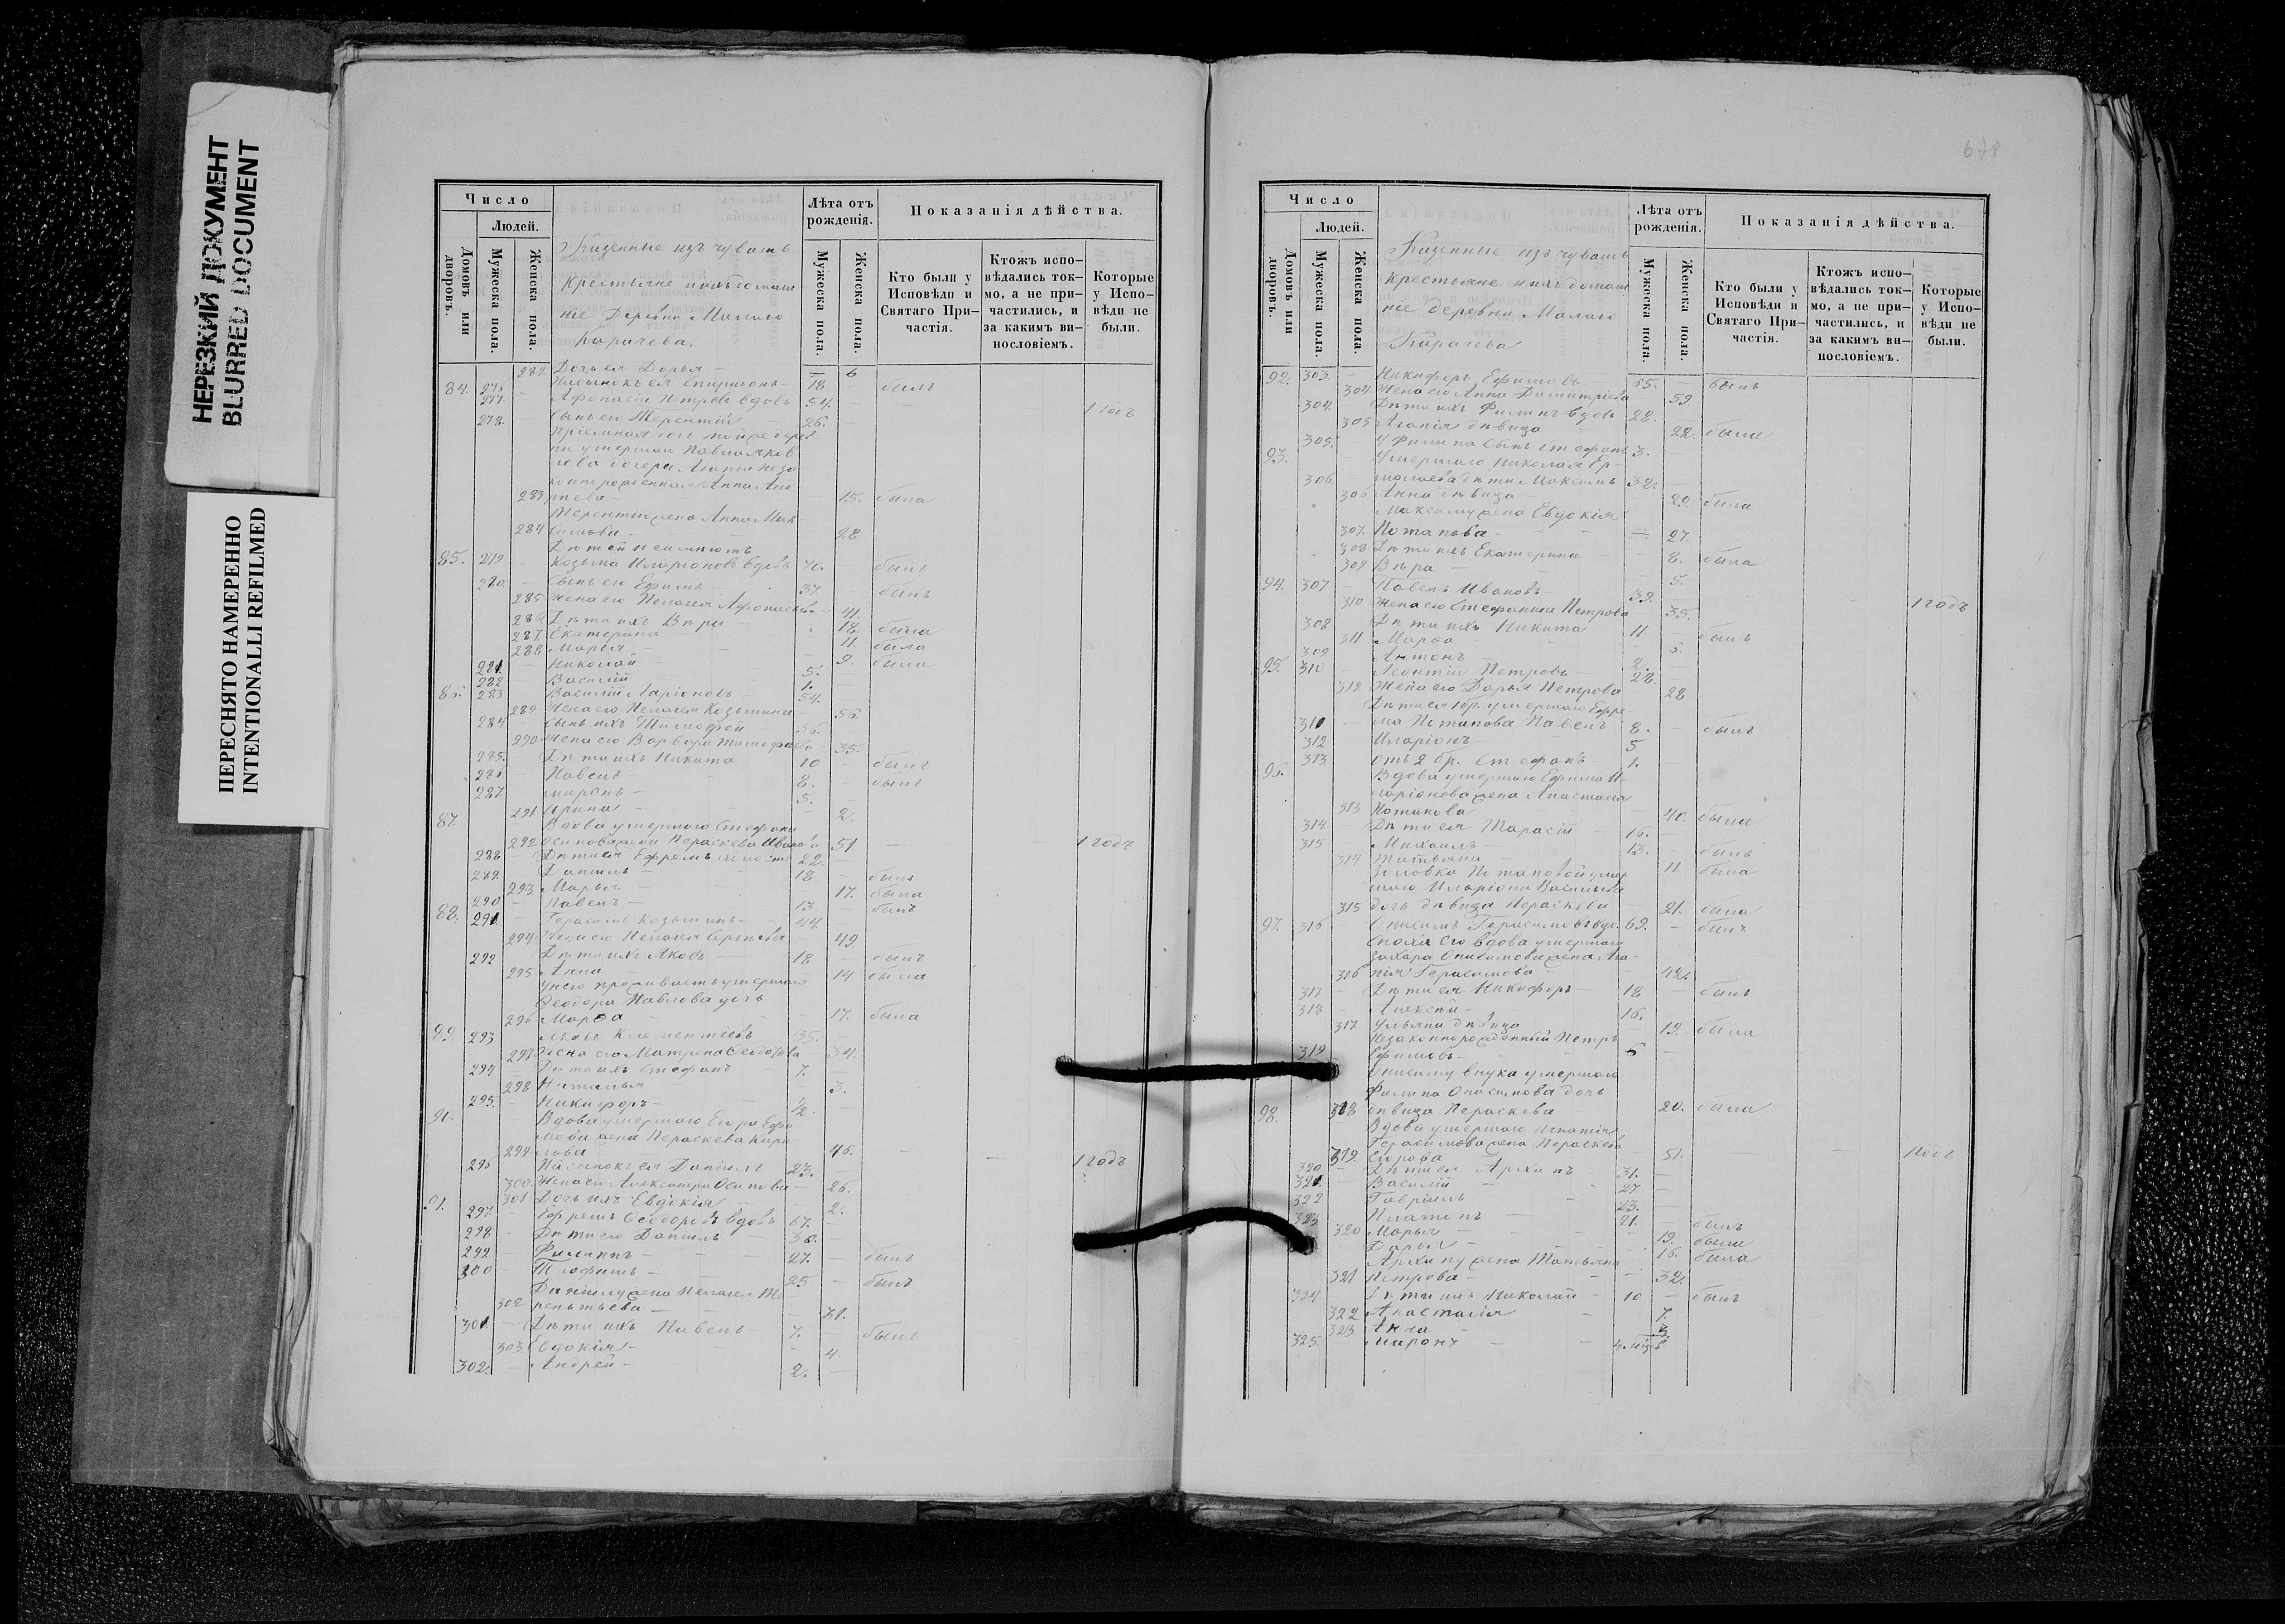 НЕРЕЗКИЙ ДОКУМЕНТ
BLURRED DOCUMENT
ПЕРЕСНЯТО НАМЕРЕННО
INTENTIONALLI REFILMED
Число
Людей.
Домовъ или дворовъ.
Мужеска пола.
Женска пола.
Казенные изъ чувашъ
крестьяне и ихъ домаш
ніе деревни Малаго
Карачева.
Лѣта отъ рожденія.
Мужеска пола.
Женска пола.
Показанія дѣйства.
Кто были у Исповѣди и Святаго При-
частія.
Ктожъ испо-
вѣдались ток-
мо, а не при-
частились, и
за какимъ ви-
нословіемъ.
Которые
у Испо-
вѣди не
были.
282 Дочь ея Дарья — 6
84. 276 Пасынокъ ея Спиридонъ 18. былъ
277. Афонасій Петровъ вдовъ 54. 1 годъ
278. Сынъ его Терентій 26.
283 15. была
Терентія жена Анна Мак-
284 симова 28
Дѣтей неимѣютъ
85. 279 Козьма Иларіоновъ вдовъ 70. былъ
280. Сынъ его Ефимъ 37. былъ
285 Жена его Пелагея Афонасьева 41.
286 Дѣти ихъ Вѣра 18. была
287. Екатерина 11. была
288 Марья 9. была
281. Николай 5.
282 Василій 1.
86. 283 Василій Ларіоновъ 54.
289 Жена его Пелагея Козьмина 56.
284 Сынъ ихъ Тимофей 36.
290 Жена его Варвара Тимофеева 35.
285. Дѣти ихъ Никита 10 былъ
286 Павелъ 8. былъ
287. Миронъ 5.
291 Ирина 2.
87. Вдова умершаго Стефана
292 Осипова жена Параскева Иванова 51 1 годъ
288 Дѣти ея Ефремъ холостъ 22.
289. Даніилъ 18 былъ
293. Марья 17. была
290 Павелъ 13. былъ
88. 291 Герасимъ Козьминъ 44.
294 Жена его Пелагея Сергеева 49
292 Дѣти ихъ Яковъ 18 былъ
295 Анна 14. была
У него проживаетъ умершаго
Ѳеодора Павлова дочь
296 Марѳа 17. была
89. 293 Яковъ Климентіевъ 35.
297 Жена его Матрена Ѳеодотова 34.
294 Дѣти ихъ Стефанъ 7.
298 Наталья 3.
295. Никифоръ 1/2.
90. Вдова умершаго Егора Ефи
мова жена Параскева Кири
299 лова 46. 1 годъ
296 Пасынокъ ея Даніилъ 27.
300. Жена его Александра Осипова 26.
301. Дочь ихъ Евдокія 2.
91. 297. Ефремъ Ѳеодоровъ вдовъ 67.
298. Дѣти его Даніилъ 30.
299 Филиппъ 27. былъ
300 Трофимъ 25 былъ
Даніилу жена Пелагея Те
302 рентьева 31.
301 Дѣти ихъ Павелъ 7. былъ
303. Евдокія 4
302. Андрей 2.
678
Число
Людей.
Домовъ или дворовъ.
Мужеска пола.
Женска пола.
Казенные изъ чувашъ
крестьяне и ихъ домаш
ніе деревни Малаго
Карачева
Лѣта отъ рожденія.
Мужеска пола.
Женска пола.
Показанія дѣйства.
Кто были у
Исповѣди и
Святаго При-
частія.
Ктожъ испо-
вѣдались ток-
мо, а не при-
частились, и
за какимъ ви-
нословіемъ.
Которые
у Испо-
вѣди не
были.
92. 303. Никифоръ Ефимовъ 55. былъ
304 Жена его Анна Димитріева 59
304. Дѣти ихъ Филипъ вдовъ 28.
305 Агапія дѣвица 22. была
305. У Филипа сынъ Стефанъ 3.
93. Умершаго Николая Ер-
306 молаева дѣти Максимъ 32.
306 Анна дѣвица 29. была
Максиму жена Евдокія
307. Потапова 27
308 Дѣти ихъ Екатерина 8. была
309 Вѣра 5.
94. 307 Павелъ Ивановъ 39. 1 годъ
310 Жена его Стефанида Петрова 35.
308 Дѣти ихъ Никита 11. былъ
311 Марѳа 6.
309 Антонъ 2.
95. 310 Леонтій Петровъ 28.
312 Жена его Дарья Петрова 28
Дѣти ея 1 бр. умершаго Ефре-
311 ма Потапова Павелъ 8. былъ
312 Иларіонъ 5
313 отъ 2 бр. Стефанъ 1.
96. Вдова умершаго Ефима И-
ларіонова жена Анастасія
313 Потапова 40. была
314 Дѣти ея Тарасій 16.
315 Михаилъ 13. былъ
314 Татьяна 11. была
Золовка Потаповой умер
шаго Иларіона Васильева
315 дочь дѣвица Параскева 21. была
97. 316 Онисимъ Герасимовъ вдо. 69. былъ
Сноха его вдова умершаго
Захара Онисимова жена Ага-
316 пія Герасимова 42.
317 Дѣти ея Никифоръ 18 былъ
318 Алексѣй 16.
317. Ульяна дѣвица 19. была
Незаконнорожденный Петръ
319 Ефимовъ 6
Онисиму внука умершаго
Филипа Онисимова дочь
318 дѣвица Параскева 20. была
98. Вдова умершаго Игнатія
Герасимова жена Параскева
319. Егорова 51. 1 годъ
320 Дѣти ея Архипъ 31.
321. Василій 27.
322 Гавріилъ 23.
323 Платонъ 21. былъ
320 Марья 19. была
Дарья 16. была
Архипу жена Татьяна
321 Петрова 32
324 Дѣти ихъ Николай 10 былъ
322 Анастасія 7.
323. Анна 3
325. Миронъ 4 мѣс.